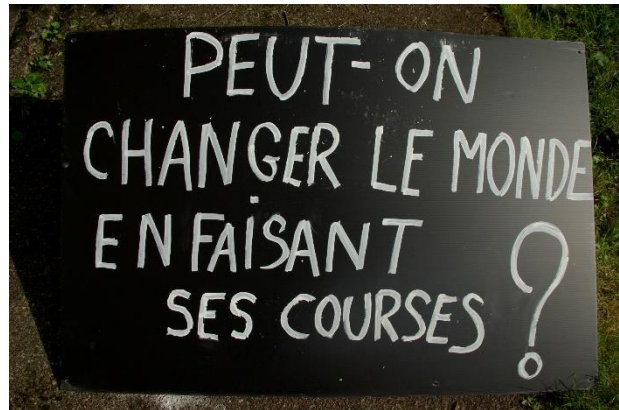 PEUT-ON
CHANGER LE MONDE
EN FAISANT
SES COURSES ?